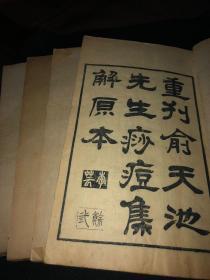 重刋俞天池
先生痧痘集
解原本